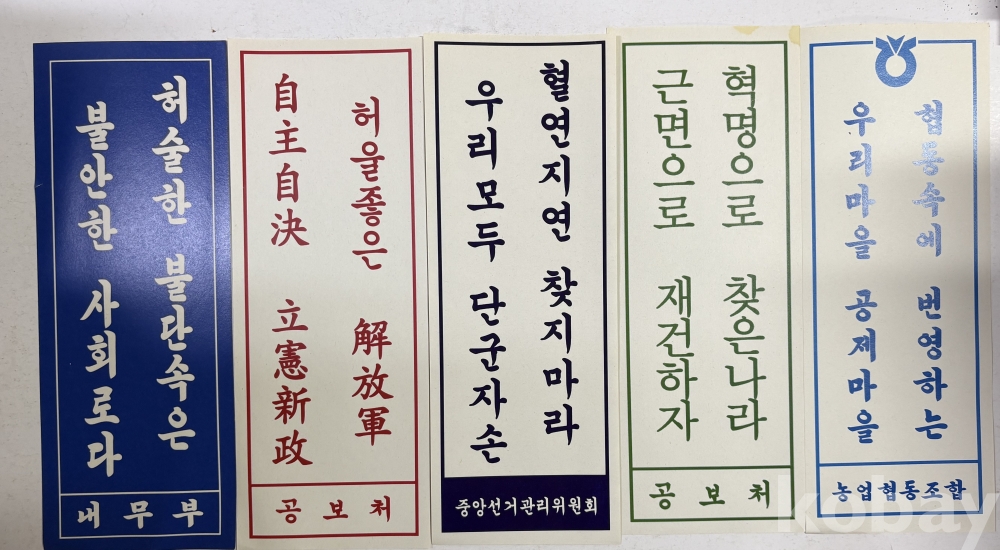 허술한 불단속은
불안한 사회로다
내무부
허울좋은 解放軍
自主自決 立憲新政
공보처
혈연지연 찾지마라
우리모두 단군자손
중앙선거관리위원회
혁명으로 찾은나라
근면으로 재건하자
공보처
협동속에 번영하는
우리마을 공제마을
농업협동조합
kobay